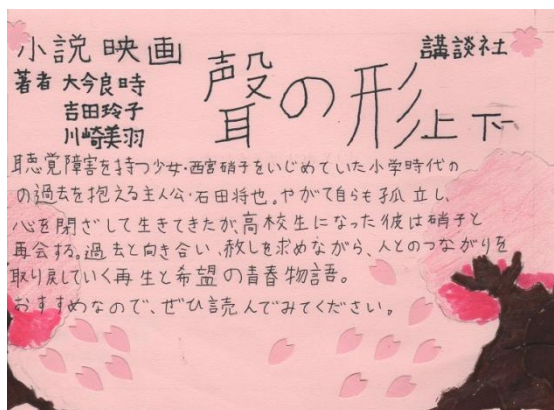 小説 映画
聲の形 上 下
講談社
著者 大今良時
吉田玲子
川崎美羽
聴覚障害を持つ少女・西宮硝子をいじめていた小学時代の
の過去を抱える主人公・石田将也。やがて自らも孤立し、
心を閉ざして生きてきたが、高校生になった彼は硝子と
再会する。過去と向き合い、赦しを求めながら、人とのつながりを
取り戻していく再生と希望の青春物語。
おすすめなので、ぜひ読んでみてください。